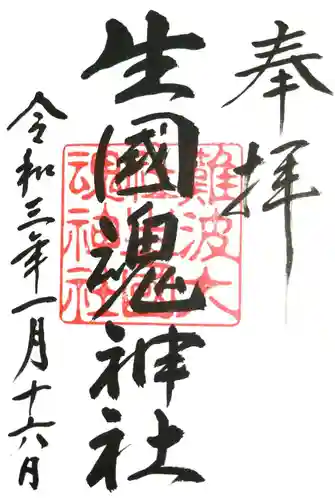 奉拝
生國魂神社
難波大
社生國
魂神社
令和三年一月十六月